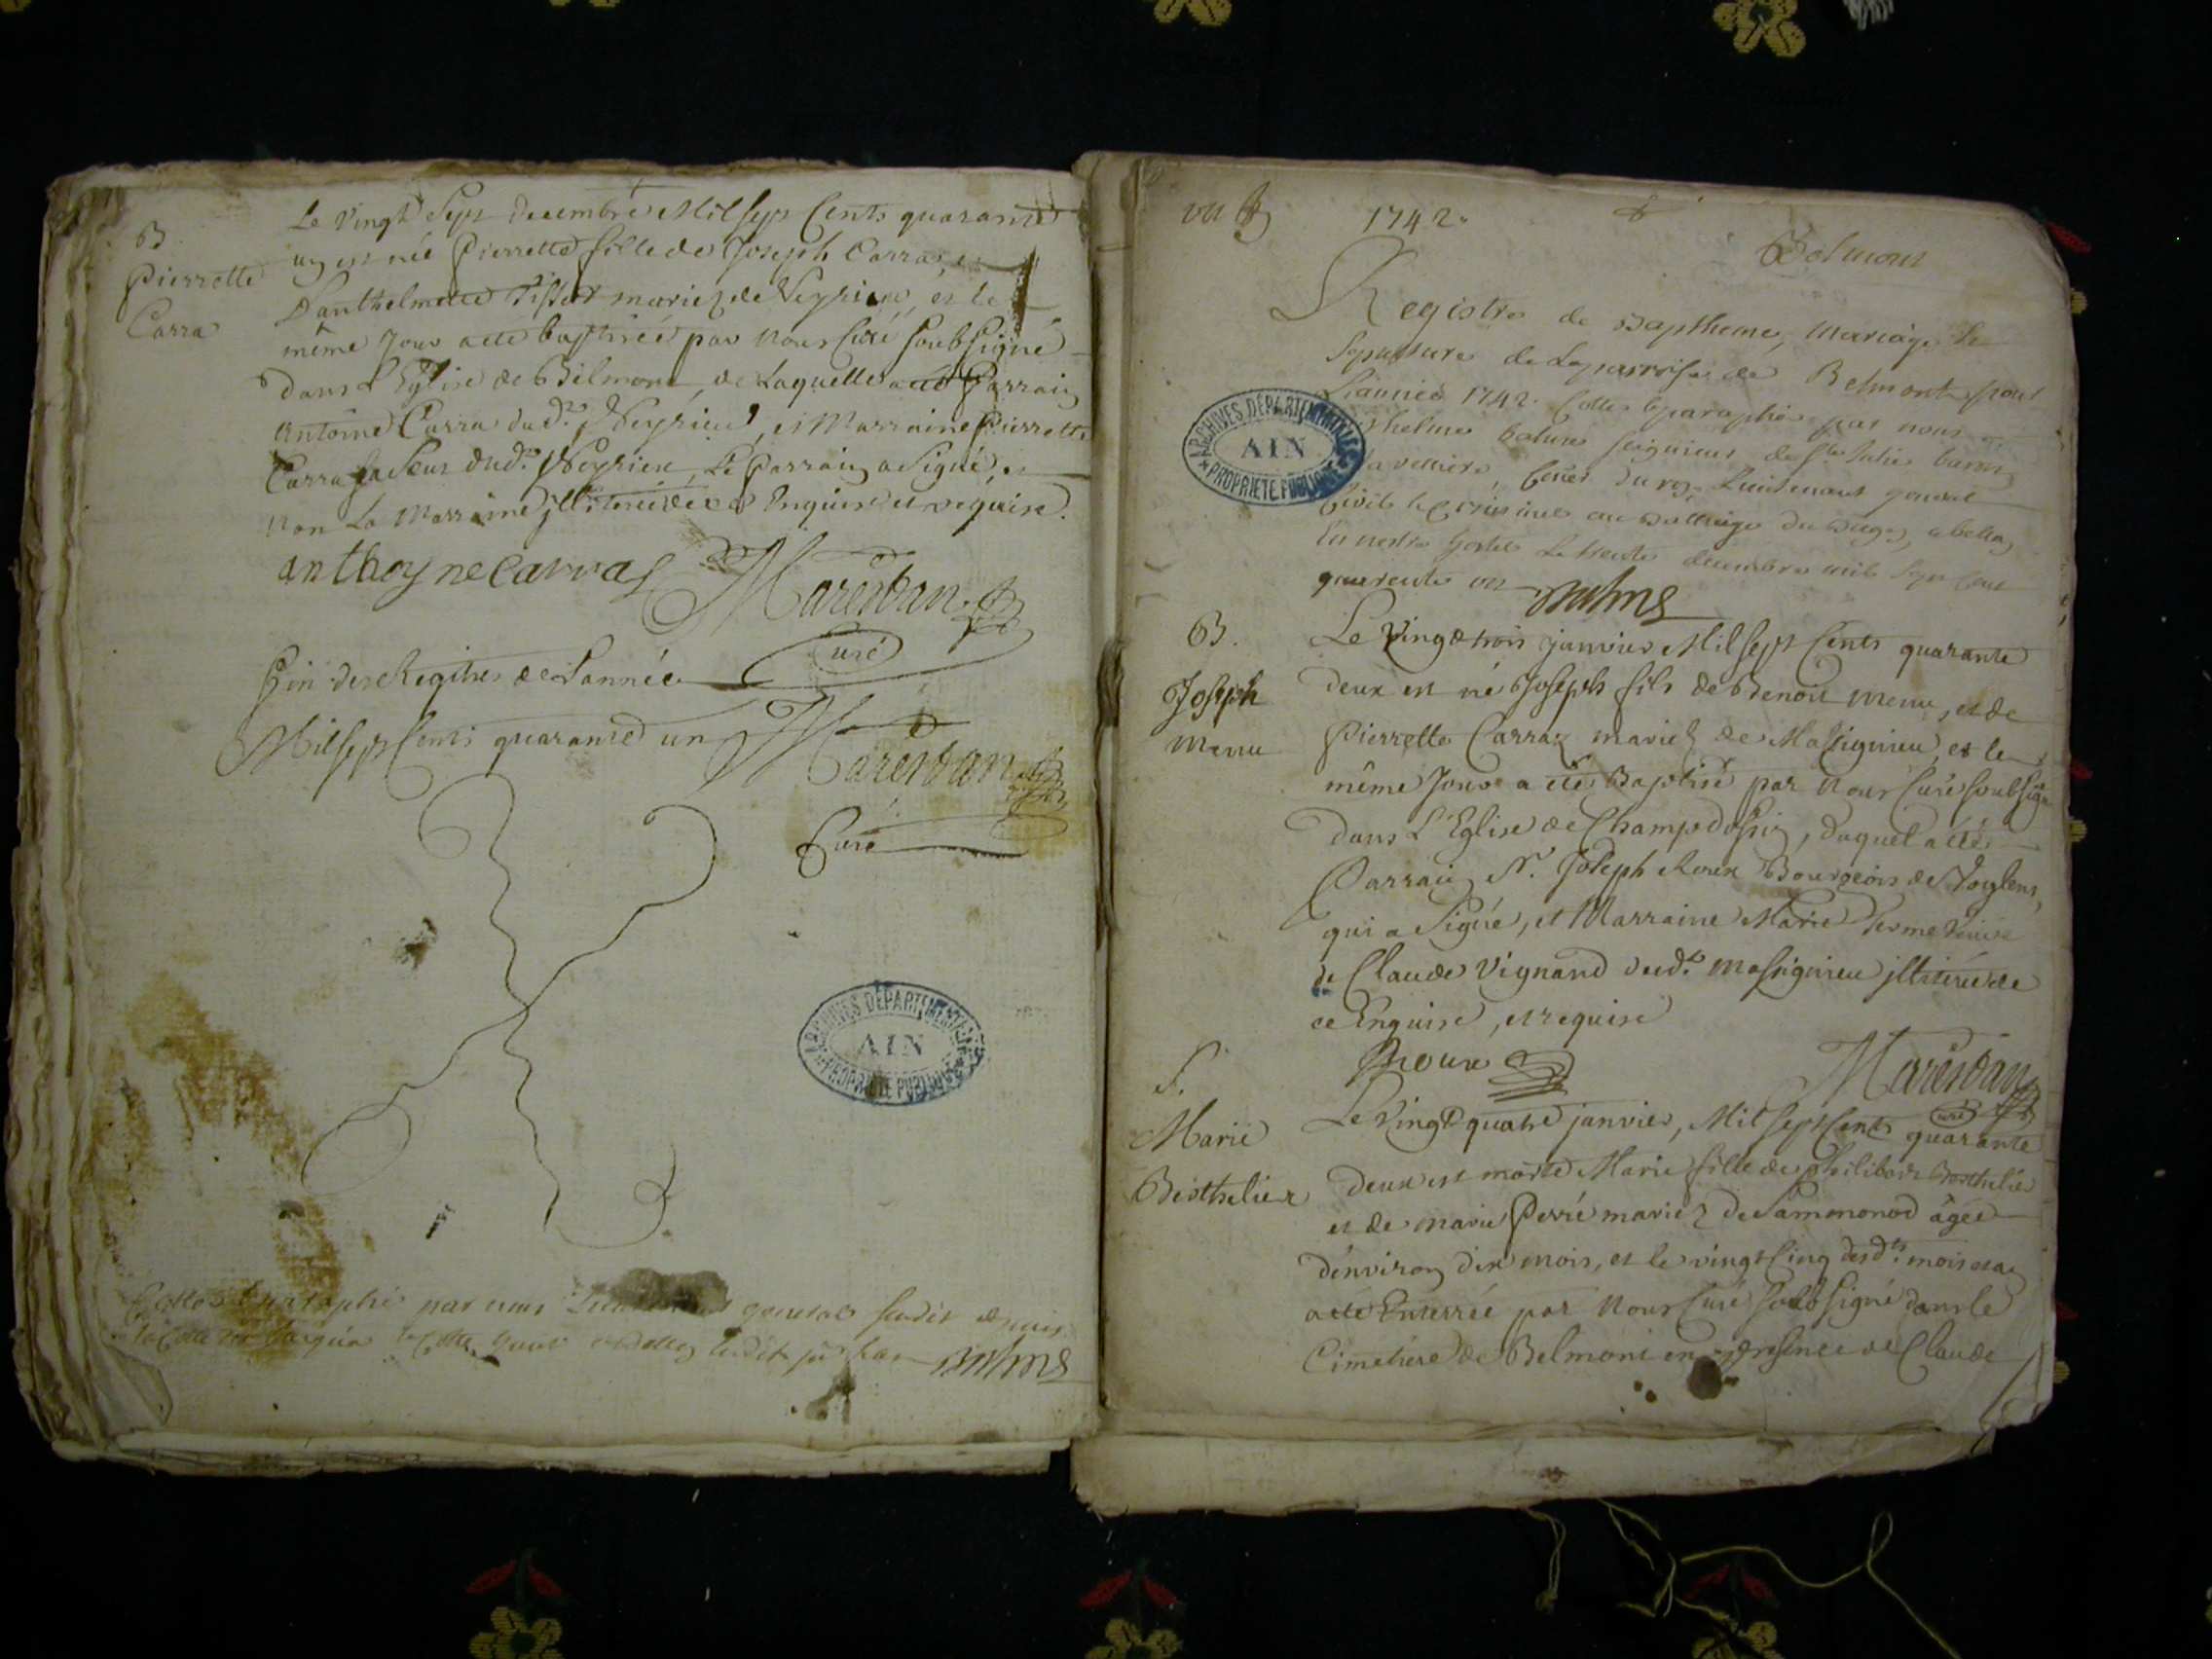 B
Pierrette
Carra
Le vingt sept decembre Mil sept Cents quarante
un est née Pierrette fille de Joseph Carraz, et
D'anthelmette Tissot mariez de Veyrieu, et le
même Jour a eté baptisée par Nous Curé soubsigné
dans L'Eglise de Belmont, de Laquelle a eté Parrain
Antoine Carra dud.t Veyrieu, et Marraine Pierrette
Carra sa Seur dud.t Veyrieu, Le Parrain a signé, et
non La Marraine illiterée de ce Enquise et requise.
anthoyne Carras Marestan
Curé
Fin des Regitres de L'année
Mil sept Cents quarante un Marestan
Curé
ARCHIVES DÉPARTEMENTALES
AIN
PROPRIÉTÉ PUBLIQUE
Cotté & paraphé par nous general susdit depuis
la Cotte jusqua la Cotte
1742.
Belmont
Registre de Baptheme, Mariage &
Sepulture de La parroisse de Belmont pour
L'année 1742. Cotté & paraphé par nous
seigneur de St Julie baron
Con.er du roy, Lieutenant general
Civil & Criminel au Balliage du Bugey, a belley
En nostre hostel Le trente decembre mil sept cent
quarente un
ARCHIVES DÉPARTEMENTALES
AIN
PROPRIÉTÉ PUBLIQUE
B.
Joseph
Menu
Le Vingt trois janvier Mil sept Cents quarante
deux est né Joseph fils de Benoit Menu, et de
Pierrette Carraz mariez de Massignieu, et le
même Jour a eté Baptisé par Nous Curé soubsigné
dans L'Eglise de Champdossin, duquel a eté
Parrain Sr. Joseph Roux Bourgeois de
qui a signé, et Marraine Marie veuve
de Claude Vignand dud.t Massignieu illiterée de
ce Enquise, et requise
Roux Marestan
curé
S.
Marie
Berthelier
Le Vingt quatre janvier, Mil sept Cents quarante
deux est morte Marie fille de philibert Berthelier
et de marie Perré mariez de Sammonod âgée
d'environ dix mois, et le vingt Cinq desd.ts mois et an
a eté Enterrée par Nous Curé soubsigné dans le
Cimetiere de Belmont en presence de Claude